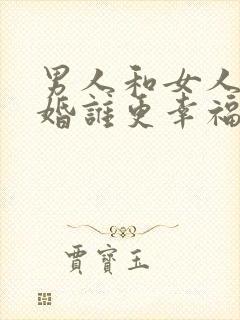 男人和女人
婚誰更幸福
賈寶玉